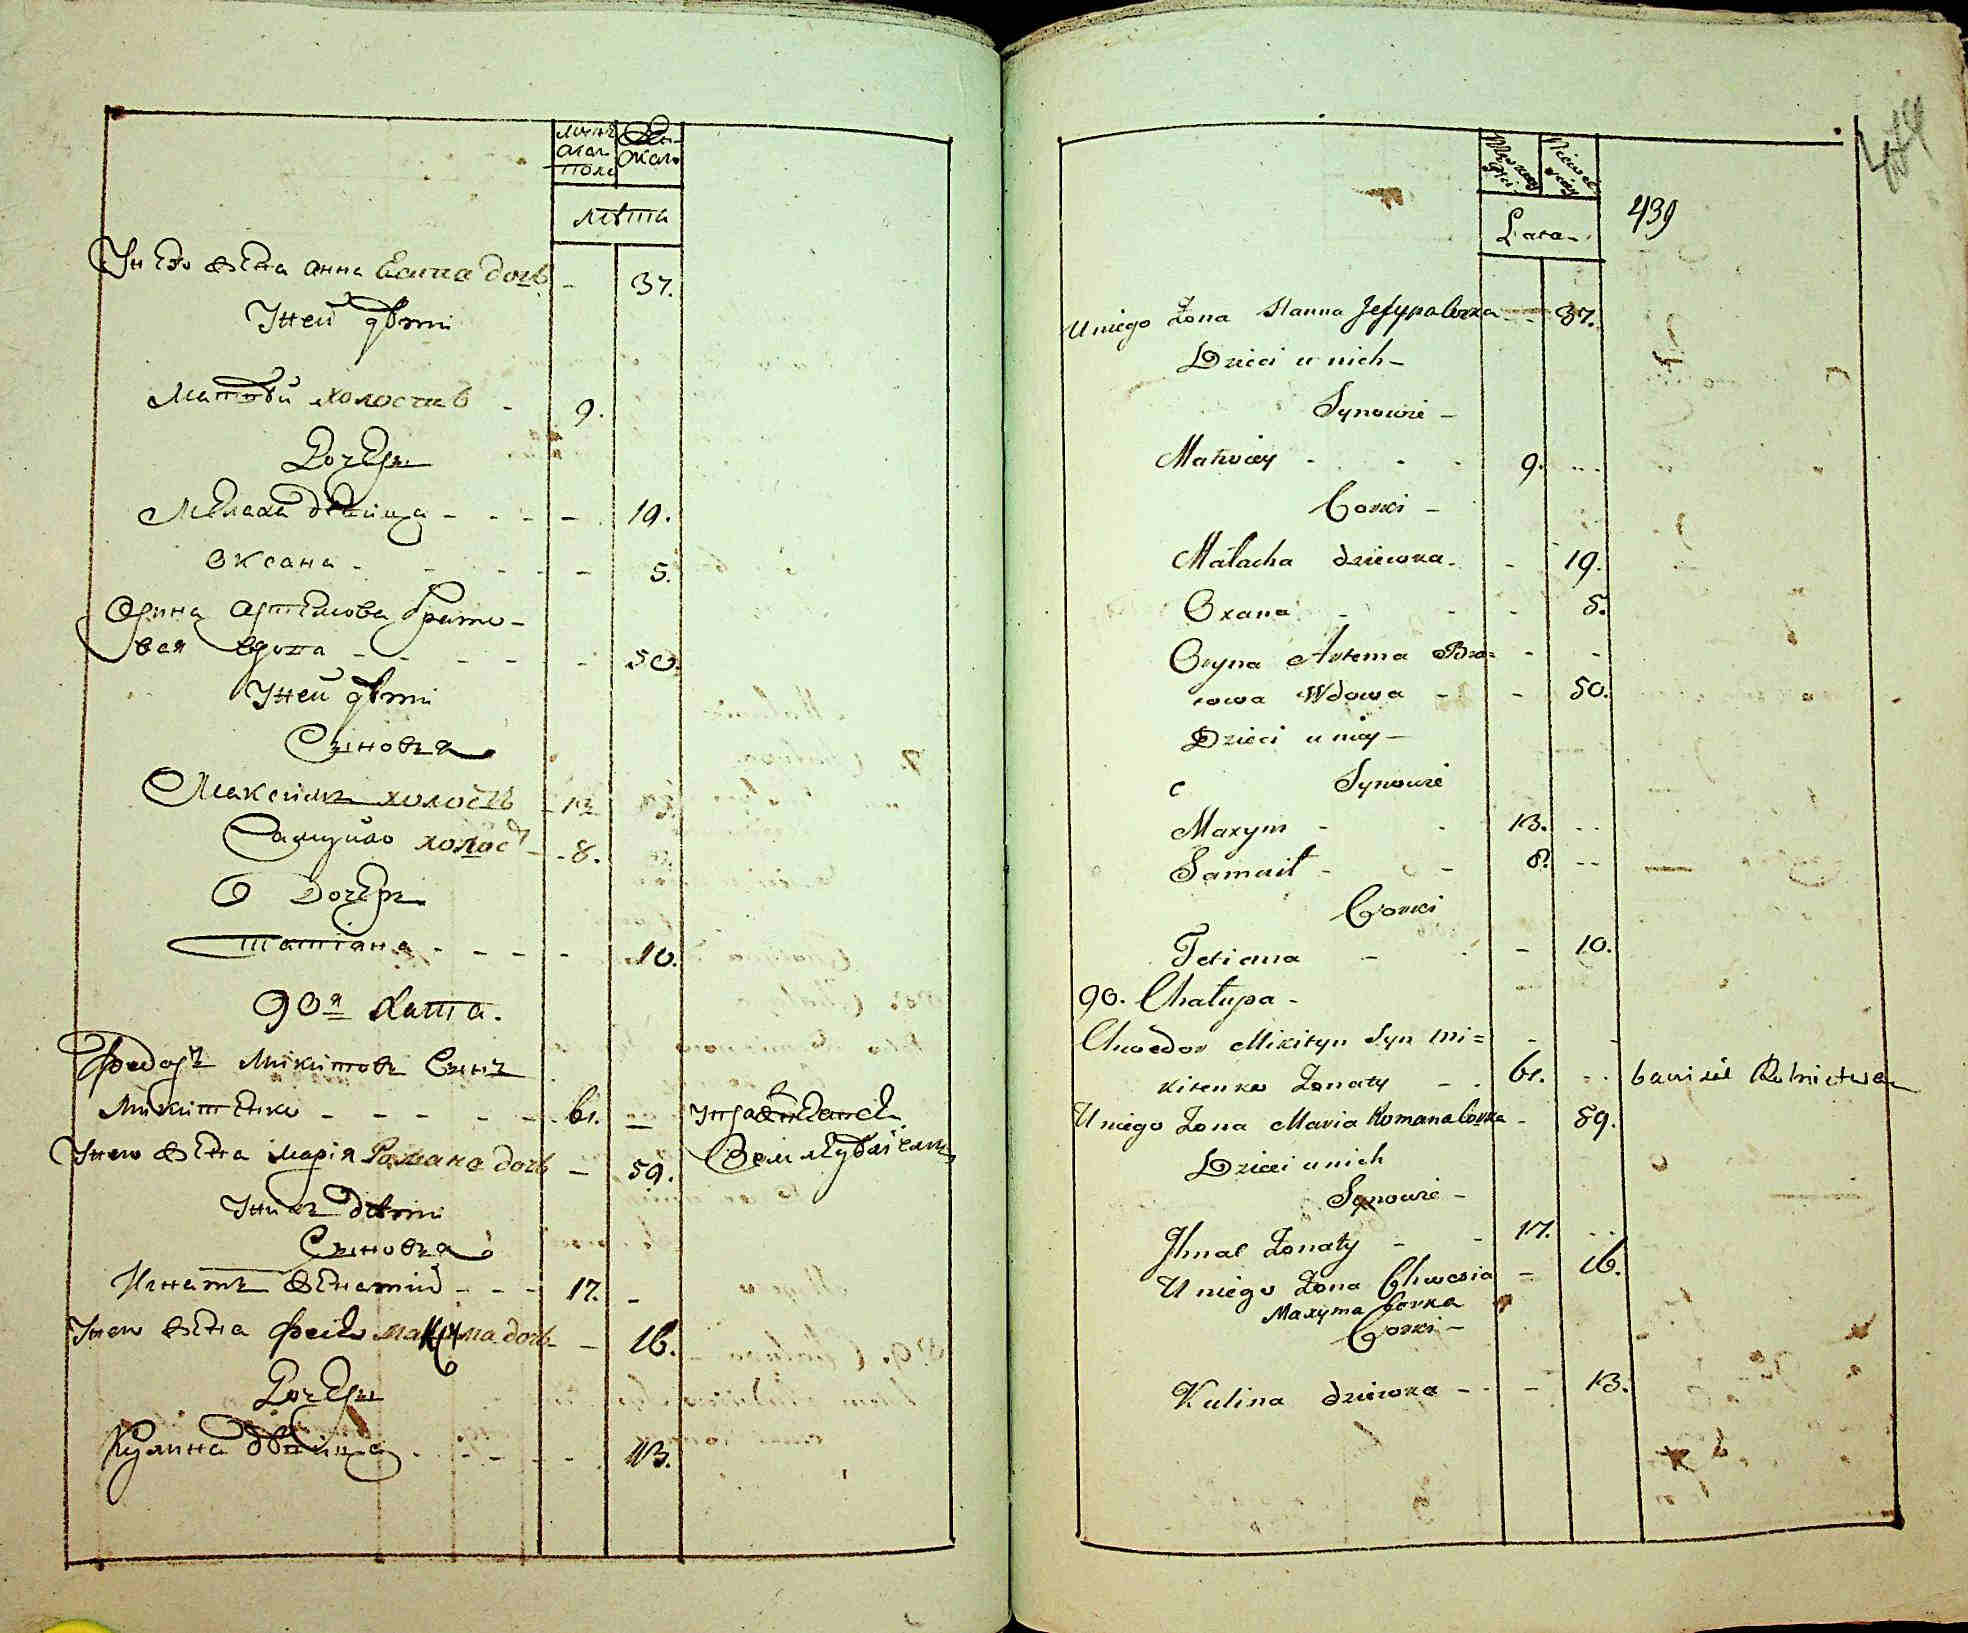 мужеска полу
женска
лѣта
У него жена Анна Есипа дочь - 37.
У ней дѣти
Матвѣй холостъ - 9.
Дочери
Мелаха дѣвица - - - - 19.
Оксана - - - - - 5.
Орина Артемова брато-
вая вдова - - - - - 50.
У ней дѣти
Сыновья
Максимъ холостъ - 13
Самуйло холостъ - 8.
Дочери
Татіана - - - - - 10.
90я хата.
Федоръ Микитовъ Сынъ
Микитенко - - - - - 61.
У него жена Марія Романа дочь - 59.
У нихъ дѣти
Сыновья
Игнатъ женатий - - - 17. -
У него жена Максима дочь - - 16.
Дочери
Кулина дѣвица - - - - - 13.
439
Lata
U niego Żona Hanna Jesypa Corka - - 37.
Dzieci u nich -
Synowie -
Matwiey - - - 9. ...
Corki -
Małacha dziewka - - 19.
Oxana - - - 5.
Oryna Artema Bra= - -
towa Wdowa - - 50.
Dzieci u niey -
Synowie
Maxym - - 13. --
Samuił - - 8. --
Corki
Tetiana - - - 10.
90. Chałupa -
Chwedor Mikityn Syn Mi= - -
kitenko Żonaty - - 61. - - bawi się Rolnictwem
U niego Żona Maria Romana Corka - 59.
Dzieci u nich
Synowie -
Ihnat Żonaty - - 17. - -
U niego Żona Chwesia - 16.
Maxyma Corka
Corki -
Kulina dziewka - - - 13.